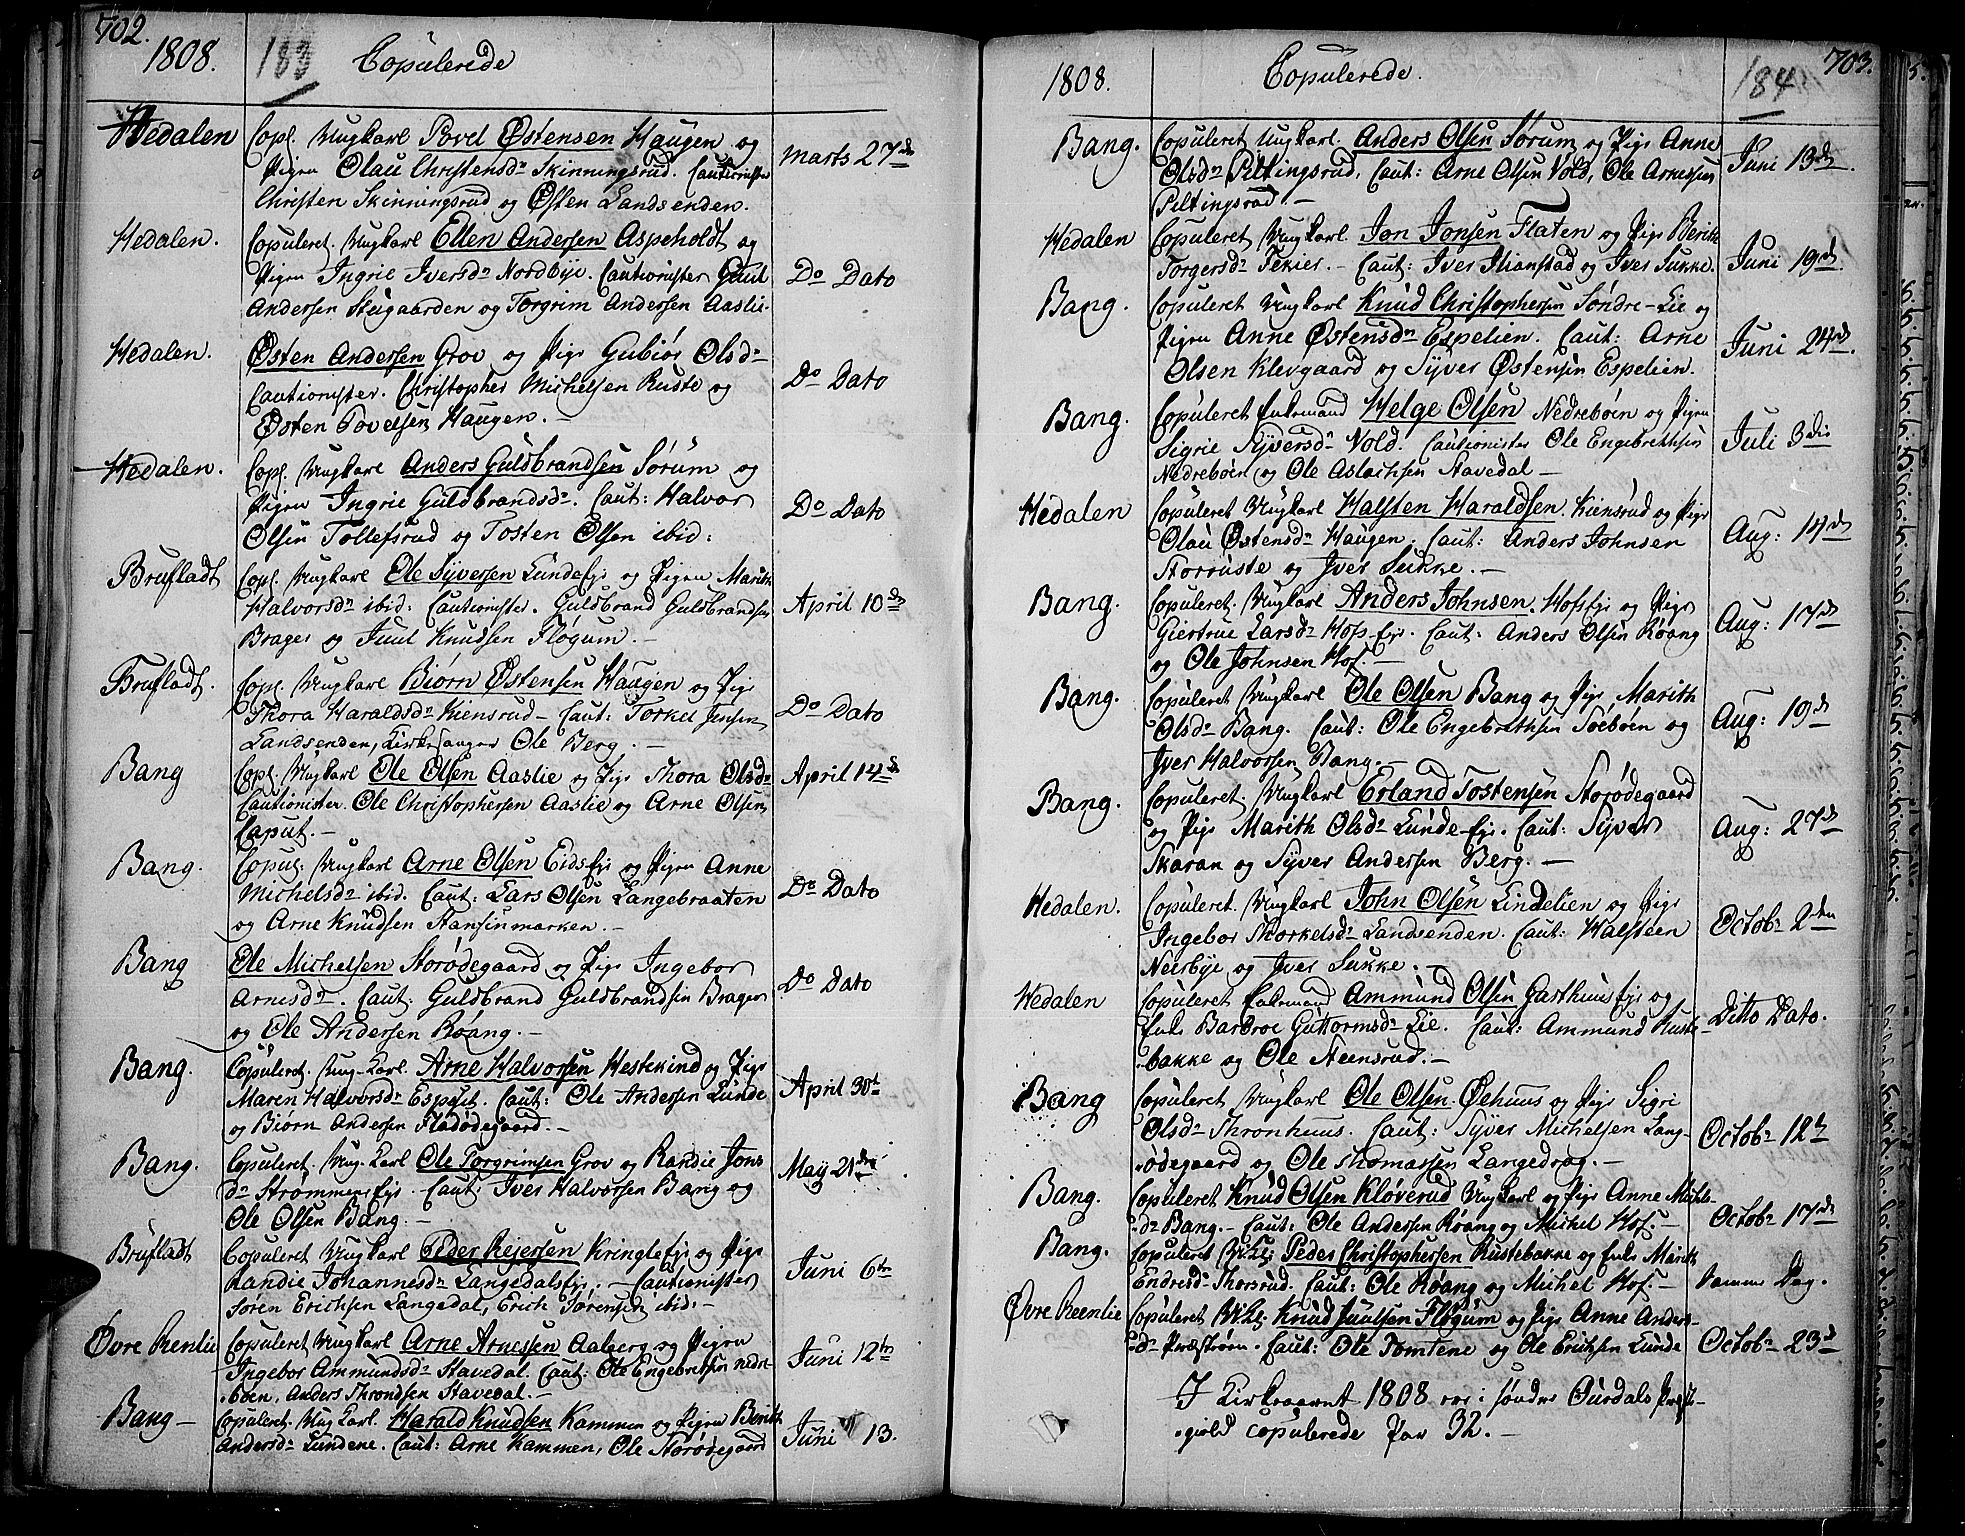 702.
1808. 183 Copulerede
Hedalen Copl. Ungkarl Povel Østensen Haugen og
Pigen Olau Christensdr Skinningsrud. Cautionister
Christen Skinningsrud og Østen Landsenden.
Marts 27de
Hedalen. Copuleret. Ungkarl Ellen Andersen Aspeholdt og
Pigen Ingrie Iversdr Nordbye. Cautionister Gaut
Andersen Stugaarden og Torgrim Andersen Aaslie.
Do Dato
Hedalen. Østen Andersen Grov og Pige Gubiør Olsdr
Cautionister. Christopher Michelsen Ruste og
Østen Povelsen Haugen.
Do Dato
Hedalen. Copl. Ungkarl Anders Guldbrandsen Sørum og
Pigen Ingrie Guldbrandsdr. Caut: Halvor
Olsen Tollefsrud og Tosten Olsen ibid:
Do Dato
Brufladt Copl. Ungkarl Ole Syversen Lundeeje og Pigen Marith
Halvorsdr ibid: Cautionister. Guldbrand Guldbrandsen
Brager og Juul Knudsen Fløgum.
April 10de
Brufladt. Copl. Ungkarl Biørn Østensen Haugen og Pige
Thora Haraldsdr Kiensrud - Caut: Torkel Jensen
Landsenden, Kirkesanger Ole Berg.
Do Dato
Bang Copl. Ungkarl Ole Olsen Aaslie og Pige Thora Olsdr
Cautionister. Ole Christophersen Aaslie og Arne Olsen
Caput.
April 14de
Bang. Copul. Ungkarl Arne Olsen Eidseje og Pigen Anne
Michelsdr ibid. Caut: Lars Olsen Langebraaten
og Arne Knudsen Stansinmarken.
Do Dato
Bang Ole Michelsen Storødegaard og Pige Ingebor
Arnesdr. Caut: Guldbrand Guldbrandsen Brager
og Ole Andersen Røang.
Do Dato
Bang. Copuleret. Ung-Karl. Arne Halvorsen Hestekind og Pige
Maren Halvorsdr Espesæt. Caut: Ole Andersen Lunde
og Biørn Andersen Fladødegaard.
April 30te
Bang. Copuleret. Ung-Karl Ole Torgrimsen Grov og Randie Jons
dr Strømmen Eje. Caut: Iver Halvorsen Bang og
Ole Olsen Bang.
May 21de
Brufladt Copuleret Ungkarl Peder Rejersen Kringleeje og Pige
Randie Johannesdr Langedalseje. - Cautionister
Søren Erichsen Langedal, Erich Sørensen ibid:
Juni 6te
Øvre Reenlie Copuleret Ungkarl Arne Arnessen Aaberg og Pigen
Ingebor Ammundsdr Stavedal. Caut: Ole Engebretsen Nedre-
bøen, Anders Throndsen Stavedal.
Juni 12te
Bang - Copuleret. Ung Karl. Harald Knudsen Kammen og Pigen Berith
Andersdr Lundene. Caut: Arne Kammen, Ole Storødegaard
Juni 13.
703.
1808. Copulerede. 184
Bang. Copuleret Ungkarl. Anders Olsen Sørum og Pige Anne
Olsdr Piltingsrud, Caut: Arne Olsen Vold, Ole Arnessen
Piltingsrud.
Juni 13de
Hedalen Copuleret Ungkarl. Jon Jonsen Flaten og Pige Berith
Torgersdr Tekier. - Caut: Iver Ilianstad og Iver Sukke.
Juni 19de
Bang. Copuleret Ungkarl Knud Christophersen Søndre-Lie og
Pigen Anne Østensdr Espelien. Caut: Arne
Olsen Klevgaard og Syver Østensen Espelien.
Juni 24de
Bang. Copuleret Enkemand Helge Olsen Nedrebøen og Pigen
Sigrie Syversdr Vold. Cautionister Ole Engebrethsen
Nedrebøen og Ole Aslachsen Stavedal
Juli 3die
Hedalen Copuleret Ungkarl Halsten Haraldsen Kiensrud og Pige
Olau Østensdr Haugen. Caut: Anders Johnsen
Storruste og Iver Sukke.
Aug: 14de
Bang. Copuleret. Ungkarl Anders Johnsen. Hofseje og Pige
Giertrue Larsdr Hofs-eje. Caut: Anders Olsen Røang
og Ole Johnsen Hof.
Aug: 17de
Bang. Copuleret Ungkarl Ole Olsen Bang og Pige Marith
Olsdr Bang. Caut: Ole Engebrethsen Søebøen og
Iver Halvorsen Bang.
Aug: 19de
Bang. Copuleret. Ungkarl Erland Tostensen Storødegaard
og Pige Marith Olsdr Lunde-eje. Caut: Syver
Skaran og Syver Andersen Berg.
Aug: 27de
Hedalen. Copuleret. Ungkarl John Olsen Lindelien og Pige
Ingebor Thorkelsdr Landsenden. Caut: Halsteen
Neerbye og Iver Sukke.
Octobr 2den
Hedalen Copuleret Enkemand Ammund Olsen Garthuuseje og
Enke Barbroe Guttormsdr Lie. Caut: Ammund Ruste-
bakke og Ole Steensrud.
Ditto Dato.
Bang Copuleret Ungkarl Ole Olsen Øehuus og Pige Sigri
Olsdr Thronhuus. Caut: Syver Michelsen Lang-
ødegaard og Ole Thomassen Langedrag.
Octobr 12te
Bang. Copuleret Knud Olsen Kløverud Ungkarl og Pige Anne Michels-
dr Bang. - Caut: Ole Andersen Røang og Michel Hof.
Octobr 17de
Bang. Copuleret U.K: Peder Christophersen Rustebakke og Enke Marith
Endresdr Thorsrud. Caut: Ole Røang og Michel Hof.
Samme Dag.
Øvre Reenlie Copuleret U.K: Knud Juulsen Fløgum og Pige Anne Anders-
dr Præstrøen. Caut: Ole Tomtene og Ole Erichsen Lunde
Octobr 23de
I Kirkeaaret 1808 var i søndre Ourdals Præste-
gield copulerede Par 32.